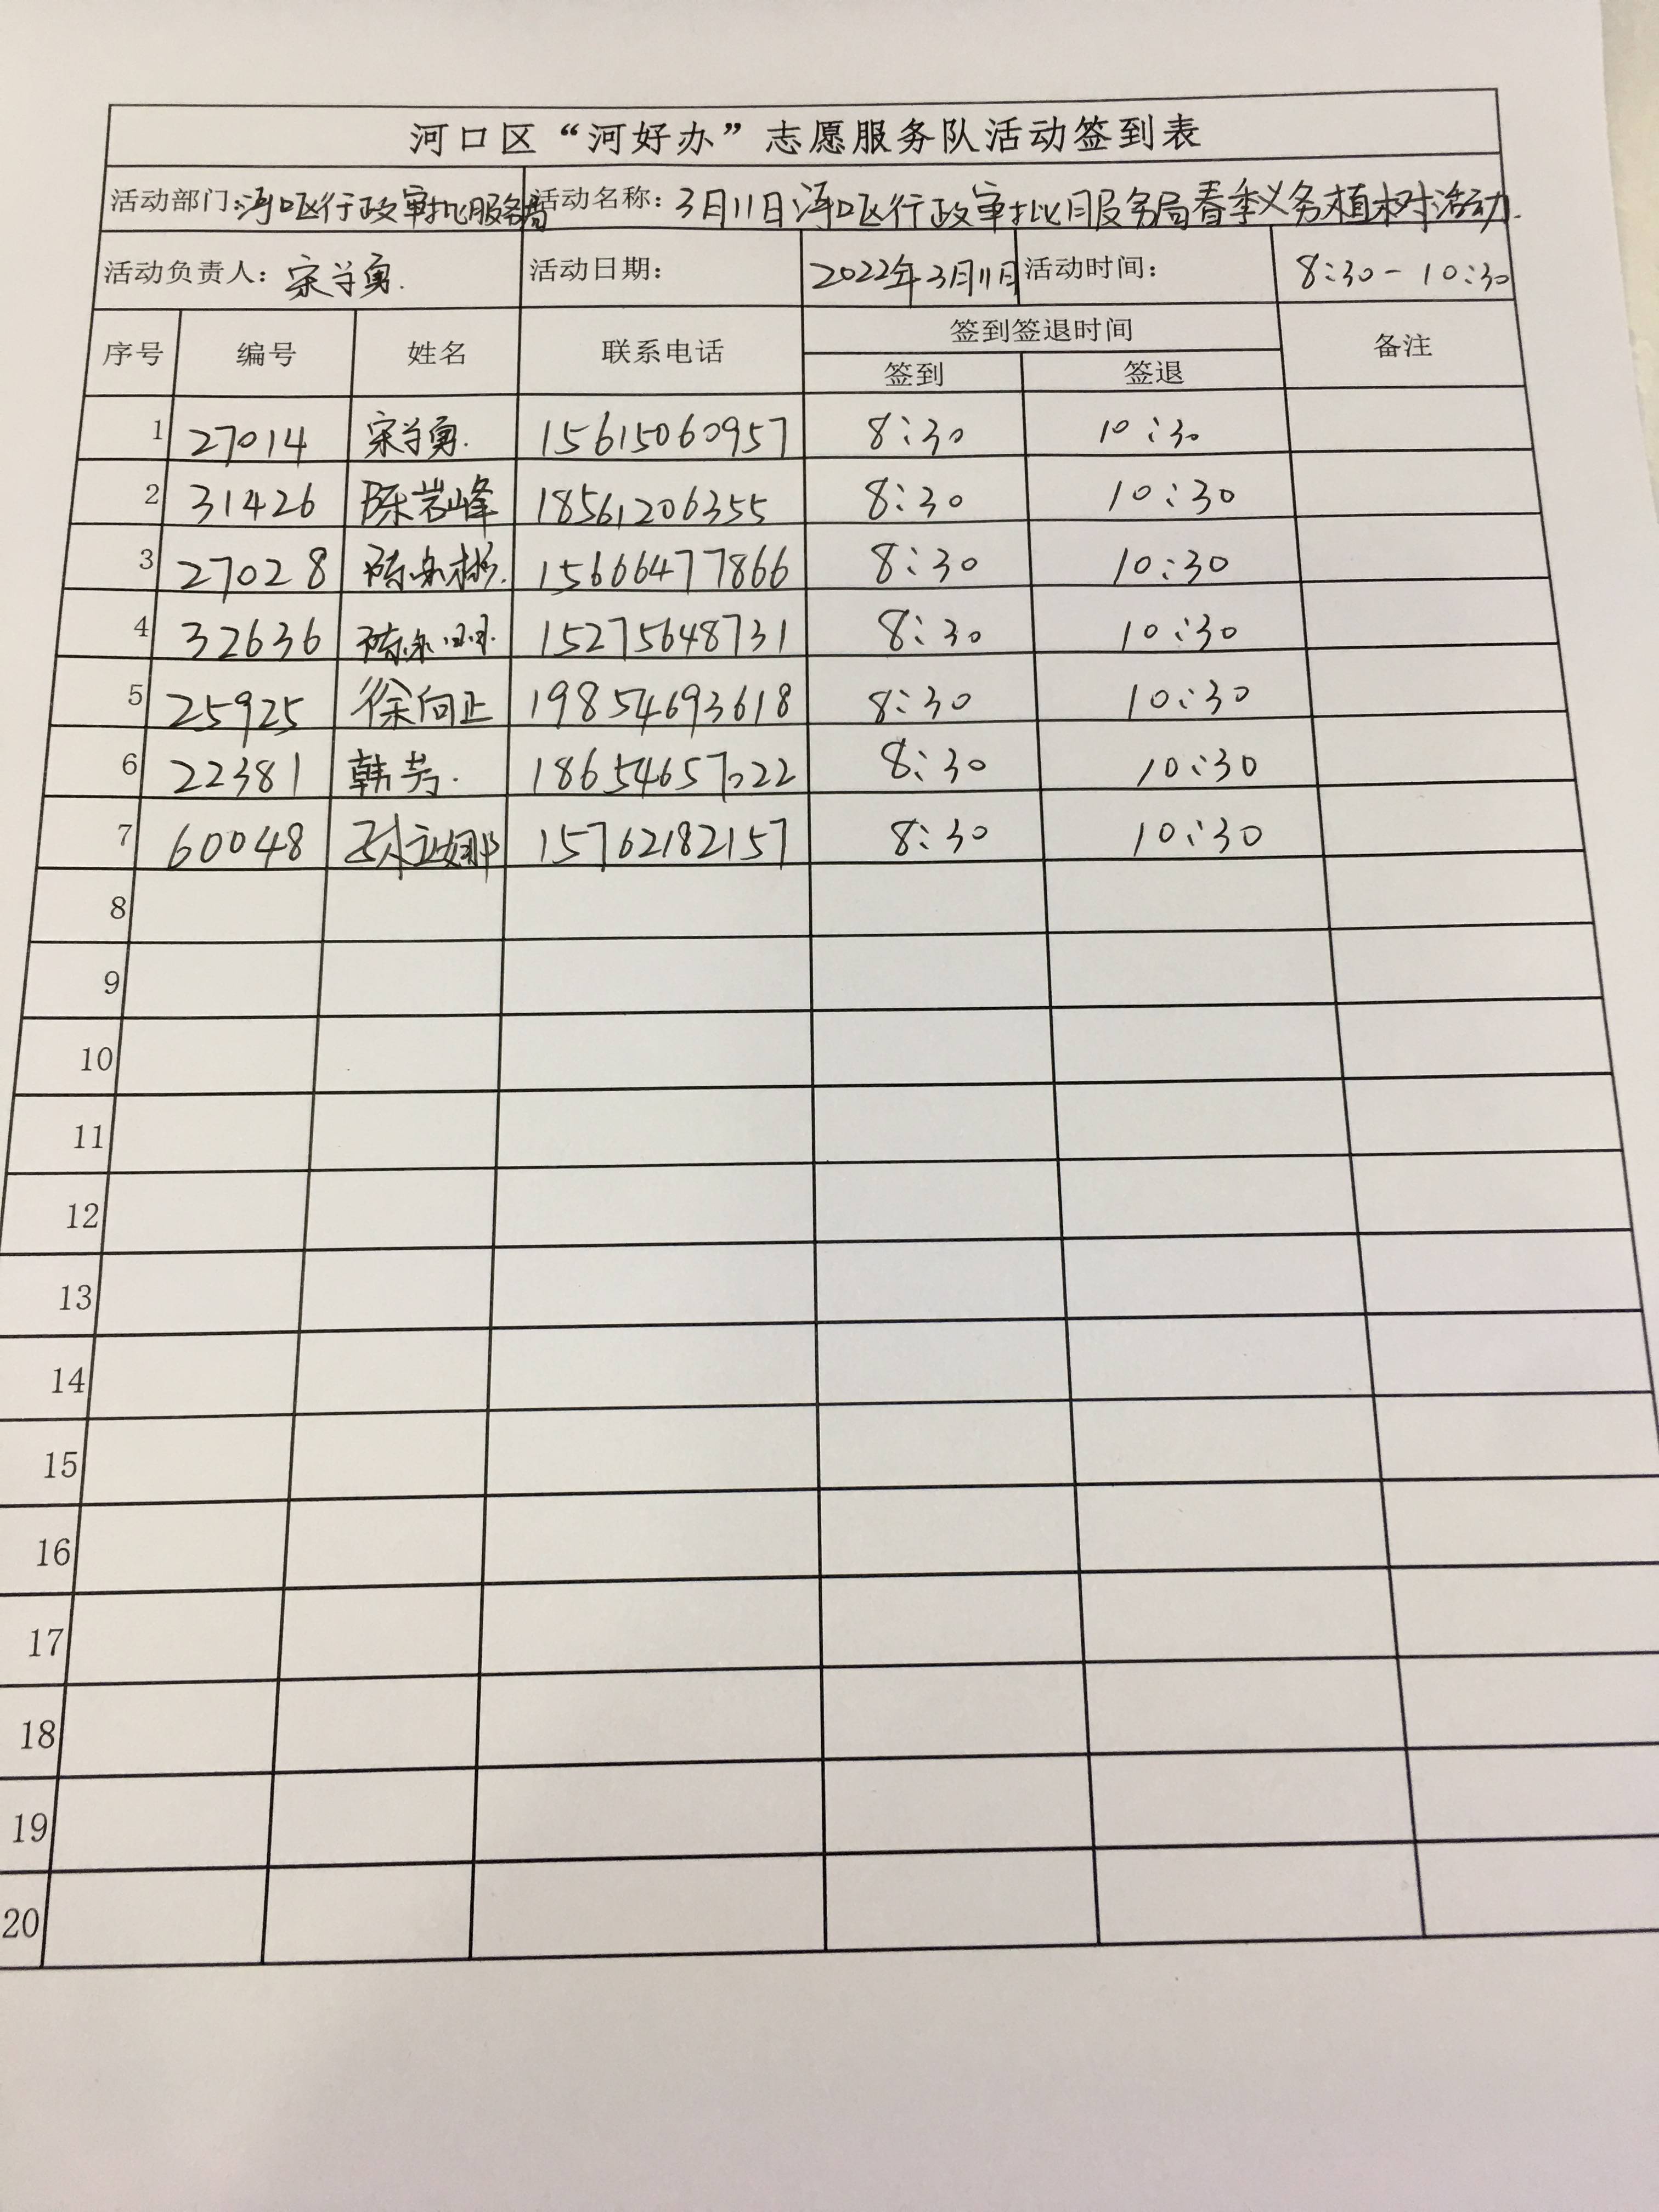 河口区“河好办”志愿服务队活动签到表
活动部门:河口区行政审批服务局 活动名称: 3月11日河口区行政审批服务局春季义务植树活动.
活动负责人: 宋学勇. 活动日期: 2022年3月11日 活动时间: 8:30-10:30
序号 编号 姓名 联系电话 签到签退时间 备注
签到 签退
1 27014 宋学勇. 15615060957 8:30 10:30
2 31426 陈岩峰 18561206355 8:30 10:30
3 27028 陈 彬. 15606477866 8:30 10:30
4 32636 陈 15275648731 8:30 10:30
5 25925 徐向正 19854693618 8:30 10:30
6 22381 韩芳. 18654657022 8:30 10:30
7 60048 孙立娜 15762182157 8:30 10:30
8
9
10
11
12
13
14
15
16
17
18
19
20